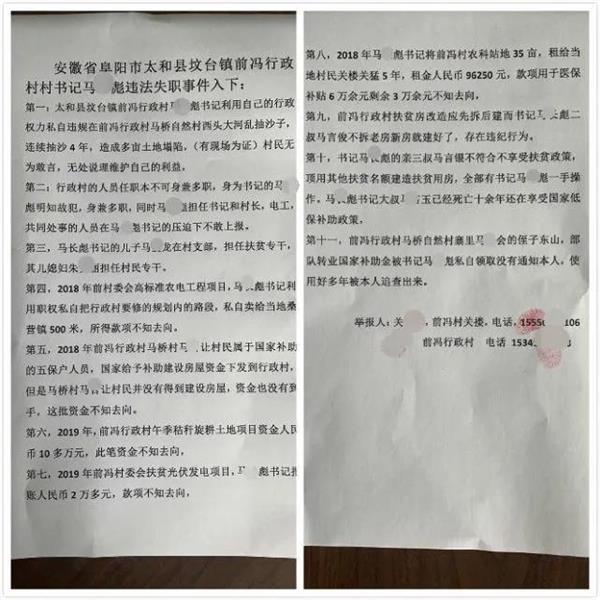 安徽省阜阳市太和县坟台镇前冯行政
村村书记马 彪违法失职事件入下：
第一：太和县坟台镇前冯行政村马 彪书记利用自己的行政
权力私自违规在前冯行政村马桥自然村西头大河乱抽沙子，
连续抽沙 4 年，造成多亩土地塌陷，（有现场为证）村民无
为敢言，无处说理维护自己的利益，
第二：行政村的人员任职本不可身兼多职，身为书记的马
彪明知故犯，身兼多职，同时马 彪担任书记和村长，电工，
共同处事的人员在马 彪书记的压迫下不敢上报。
第三，马长彪书记的儿子马 龙在村支部，担任扶贫专干，
其儿媳妇朱 丽担任村民专干。
第四，2018 年前村委会高标准农电工程项目，马 彪书记利
用职权私自把行政村要修的规划内的路段，私自卖给当地桑
营镇 500 米，所得款项不知去向。
第五，2018 年前冯行政村马桥村马 让村民属于国家补助
的五保户人员，国家给予补助建设房屋资金下发到行政村，
但是马桥村马 让村民并没有得到建设房屋，资金也没有到
手，这批资金不知去向。
第六，2019 年，前冯行政村午季秸秆旋耕土地项目资金人民
币 10 多万元，此笔资金不知去向。
第七，2019 年前冯村委会扶贫光伏发电项目，马 彪书记报
账人民币 2 万多元，款项不知去向，
第八，2018 年马 彪书记将前冯村农科站地 35 亩，租给当
地村民关楼关猛 5 年，租金人民币 96250 元，款项用于医保
补贴 6 万余元剩余 3 万余元不知去向，
第九，前冯行政村扶贫房改造应先拆后建而书记马 彪二
叔马言俊不拆老房新房就建好了，存在违纪行为。
第十，书记马 彪的亲三叔马言银不符合不享受扶贫政策，
项用其扶贫名额建造扶贫用房，全部有书记马 彪一手操
作。马 彪书记大叔马 玉已经死亡十余年还在享受国家低
保补助政策。
第十一，前冯行政村马桥自然村寨里马 会的侄子东山，部
队转业国家补助金被书记马 彪私自领取没有通知本人。使
用好多年被本人追查出来。
举报人：关 ，前冯村关楼，电话，1555 106
前冯行政村 电话 1534